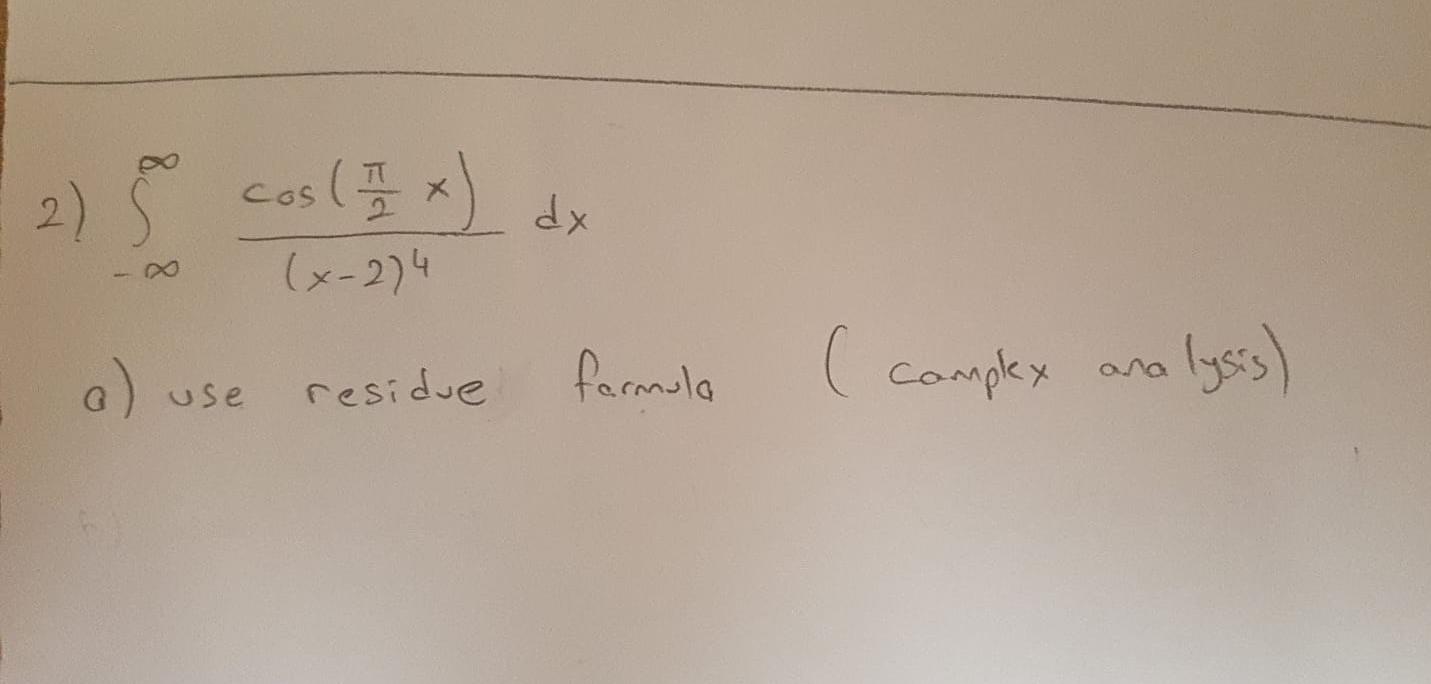 2) ∫_{-∞}^{∞} cos(π/2 x) / (x-2)^4 dx
a) use residue formula ( complex analysis)